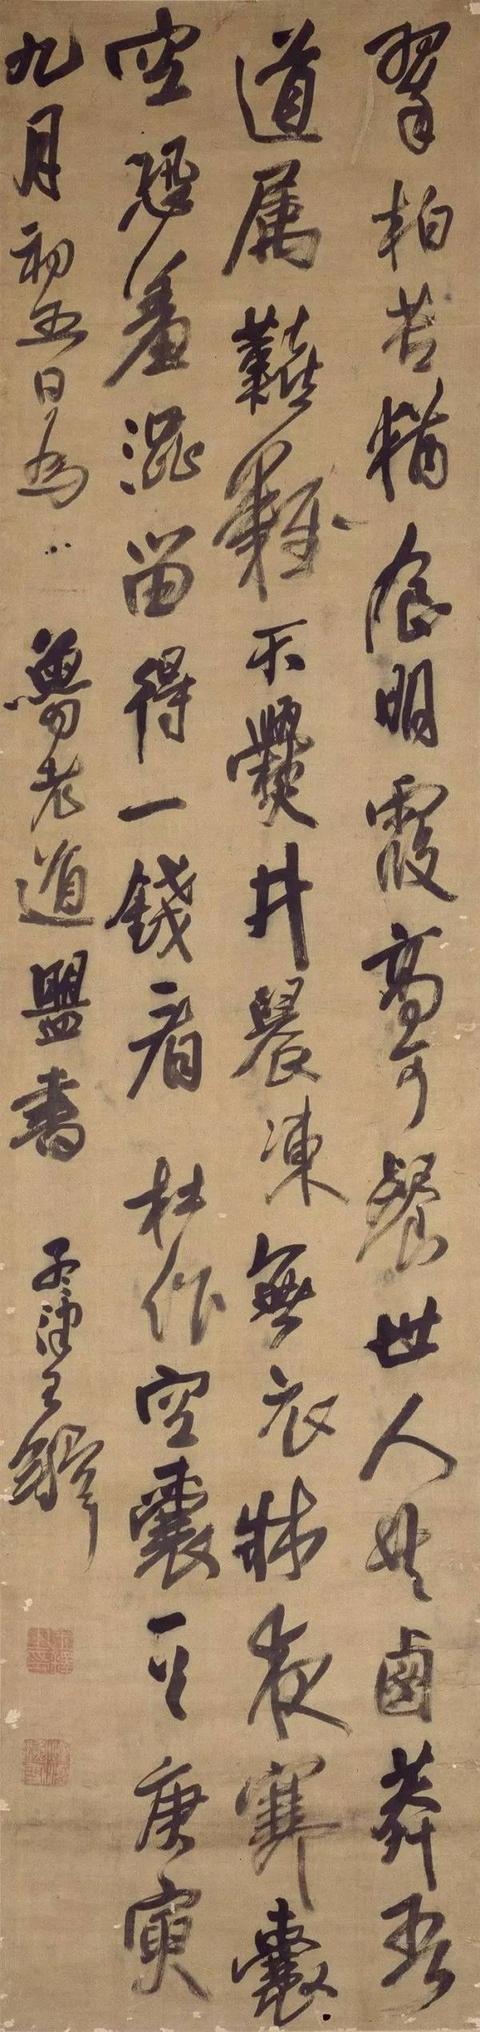 翠柏苦猶食明霞高可餐世人共鹵莽吾
道属艱難不爨井晨凍無衣牀夜寒囊
空恐羞澀留得一錢看 杜作空囊一首 庚寅
九月初五日為 魯老道盟書 孟津王鐸